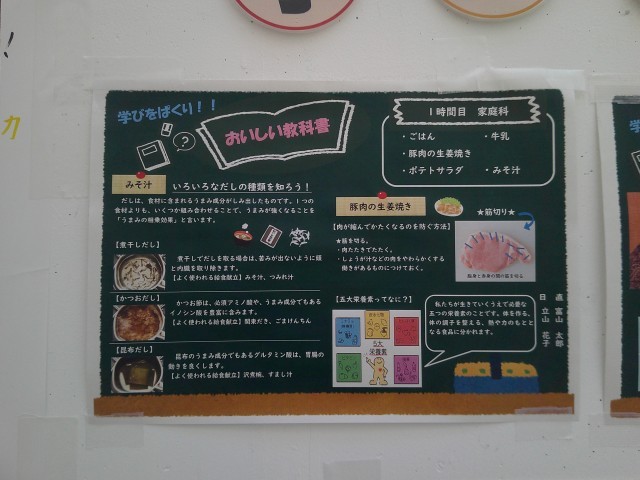 学びをぱくり！！
おいしい教科書
1時間目 家庭科
・ごはん ・牛乳
・豚肉の生姜焼き
・ポテトサラダ ・みそ汁
みそ汁
いろいろなだしの種類を知ろう！
だしは、食材に含まれるうまみ成分がしみ出したものです。1つの
食材よりも、いくつか組み合わせることで、うまみが強くなることを
「うまみの相乗効果」と言います。
【煮干しだし】
煮干しでだしを取る場合は、苦みが出ないように頭
と内臓を取り除きます。
【よく使われる給食献立】みそ汁、つみれ汁
【かつおだし】
かつお節は、必須アミノ酸や、うまみ成分でもある
イノシン酸を豊富に含みます。
【よく使われる給食献立】関東だき、ごまけんちん
【昆布だし】
昆布のうまみ成分でもあるグルタミン酸は、胃腸の
動きを良くします。
【よく使われる給食献立】沢煮椀、すまし汁
豚肉の生姜焼き
【肉が縮んでかたくなるのを防ぐ方法】
★筋を切る。
・肉たたきでたたく。
・しょうが汁などの肉をやわらかくする
働きがあるものにつけておく。
★筋切り★
脂身と赤身の間の筋を切る
【五大栄養素ってなに？】
5大
栄養素
私たちが生きていくうえで必要な
五つの栄養素のことです。体を作る、
体の調子を整える、熱や力のもとと
なる食品に分かれます。
日直 富山 太郎
立山 花子
！
カ